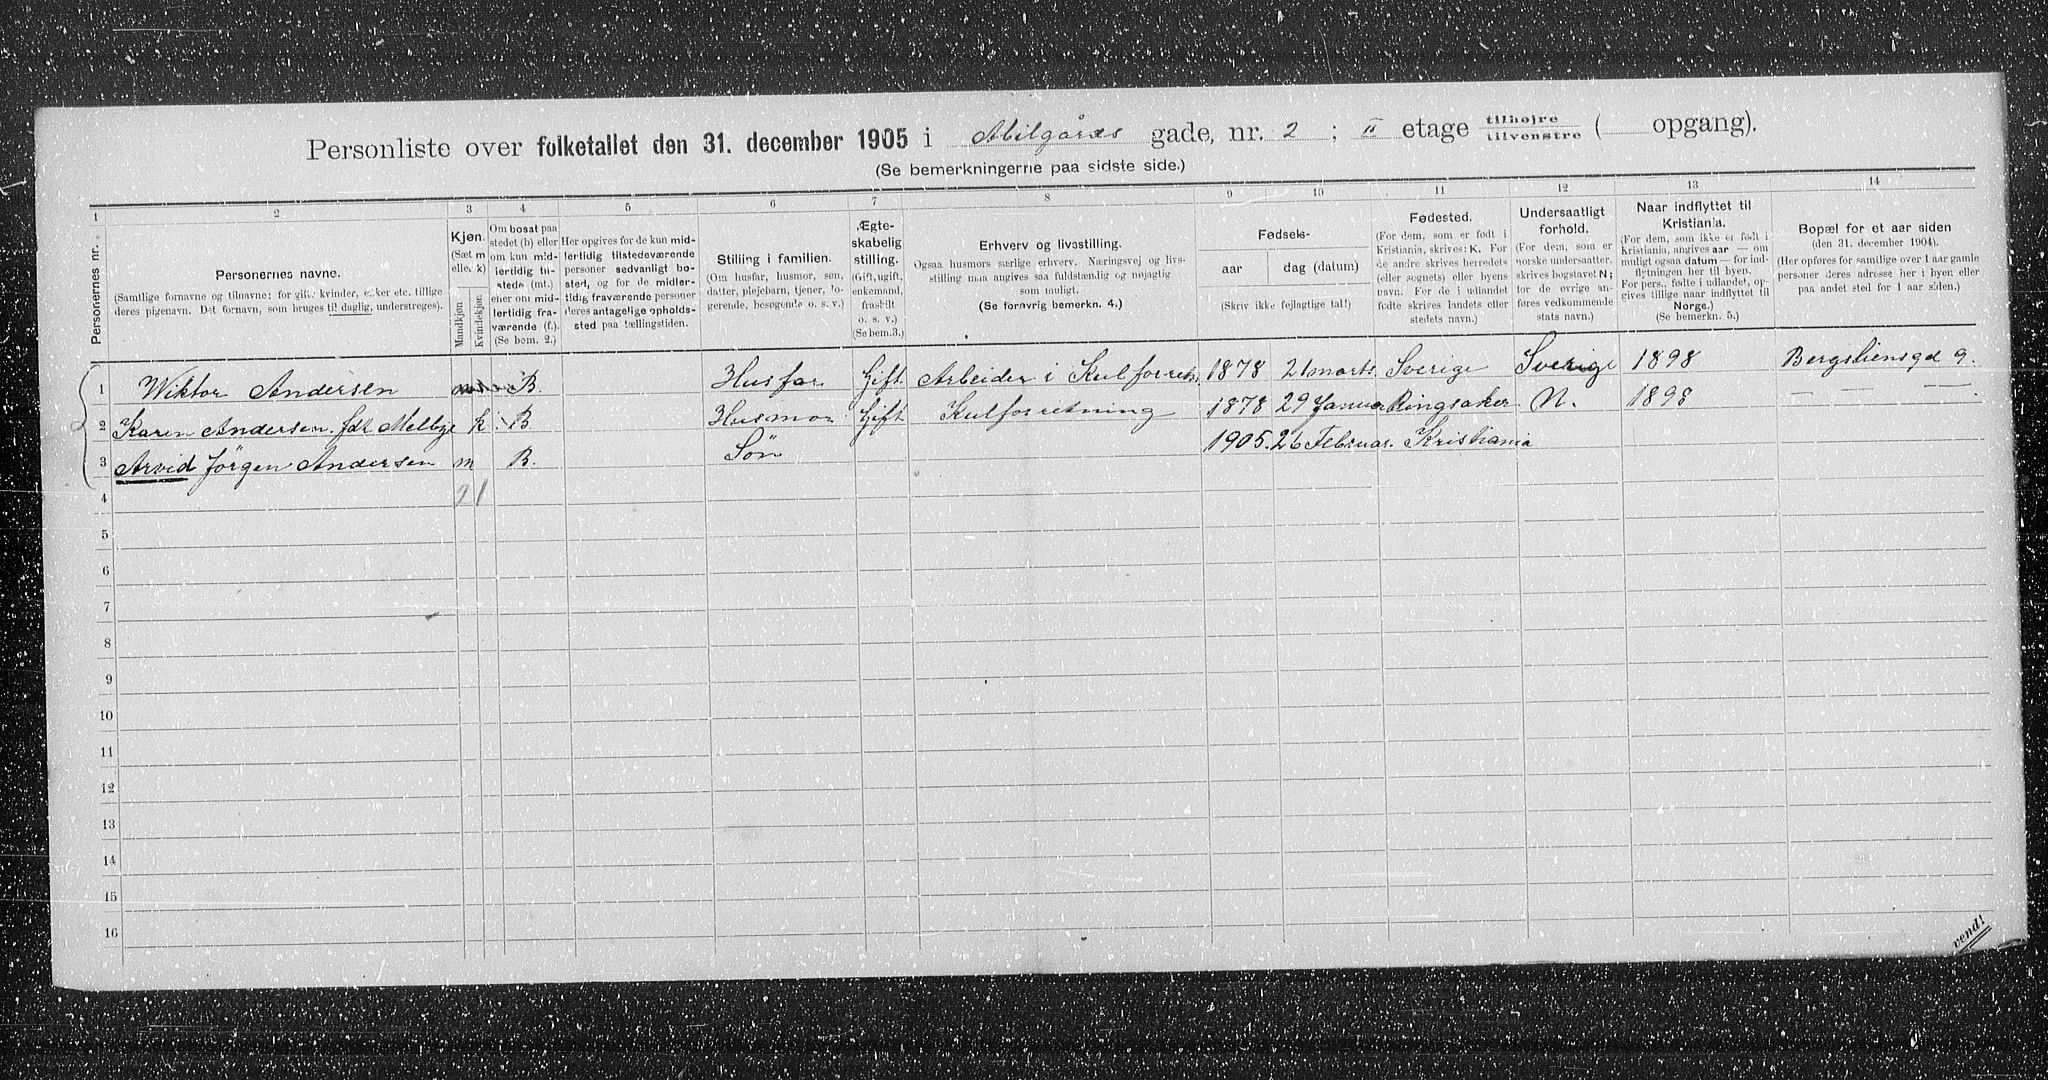 Personliste over folketallet den 31. december 1905 i Abilgårds gade, nr. 2 ; II etage tilhøjre tilvenstre ( opgang).
(Se bemerkningerne paa sidste side.)
1 2 3 4 5 6 7 8 9 10 11 12 13 14
Personernes nr.
Personernes navne.
(Samtlige fornavne og tilnavne; for gifte kvinder, enker etc. tillige
deres pigenavn. Det fornavn, som bruges til daglig, understreges).
Kjøn.
(Sæt m
eller k)
Mandkjøn
Kvindekjøn
Om bosat paa
stedet (b) eller
om kun mid-
lertidig til-
stede (mt.)
eller om mid-
lertidig fra-
værende (f.)
(Se bem. 2.)
Her opgives for de kun mid-
lertidig tilstedeværende
personer sedvanligt bo-
sted, og for de midler-
tidig fraværende personer
deres antagelige opholds-
sted paa tællingstiden.
Stilling i familien.
(Om husfar, husmor, søn,
datter, plejebarn, tjener, lo-
gerende, besøgende o. s. v.)
Ægte-
skabelig
stilling.
(Gift, ugift,
enkemand,
fraskilt
o. s. v.)
(Se bem.3.)
Erhverv og livsstilling.
Ogsaa husmors særlige erhverv. Næringsvej og livs-
stilling maa angives saa fuldstændig og nøjagtig
som muligt.
(Se forøvrig bemerkn. 4.)
Fødsels-
aar dag (datum)
(Skriv ikke fejlagtige tal!)
Fødested.
(For dem, som er født i
Kristiania, skrives: K. For
de andre skrives herredets
(eller sognets) eller byens
navn. For de i udlandet
fødte skrives landets eller
stedets navn.)
Undersaatligt
forhold.
(For dem, som er
norske undersaatter,
skrives bogstavet N;
for de øvrige an-
føres vedkommende
stats navn.)
Naar indflyttet til
Kristiania.
(For dem, som ikke er født i
Kristiania, angives aar — om
muligt ogsaa datum — for ind-
flytningen her til byen.
For pers., fødte i udlandet, op-
gives tillige naar indflyttet til
Norge.)
(Se bemerkn. 5.)
Bopæl for et aar siden
(den 31. december 1904).
(Her opføres for samtlige over 1 aar gamle
personer deres adresse her i byen eller
paa andet sted for 1 aar siden.)
1 Wiktor Andersen m B. Husfar Gift Arbeider i Kulforretn. 1878 21 marts. Sverige Sverige 1898 Bergsliensgd 9.
2 Karen Andersen. fdt Melbye k B Husmor Gift Kulforretning 1878 29 Januar Ringsaker N. 1898 — — —
3 Arvid Jörgen Andersen m B. Sön 1905. 26 Februar. Kristiania
4 2 1
5
6
7
8
9
10
11
12
13
14
15
16
vend!